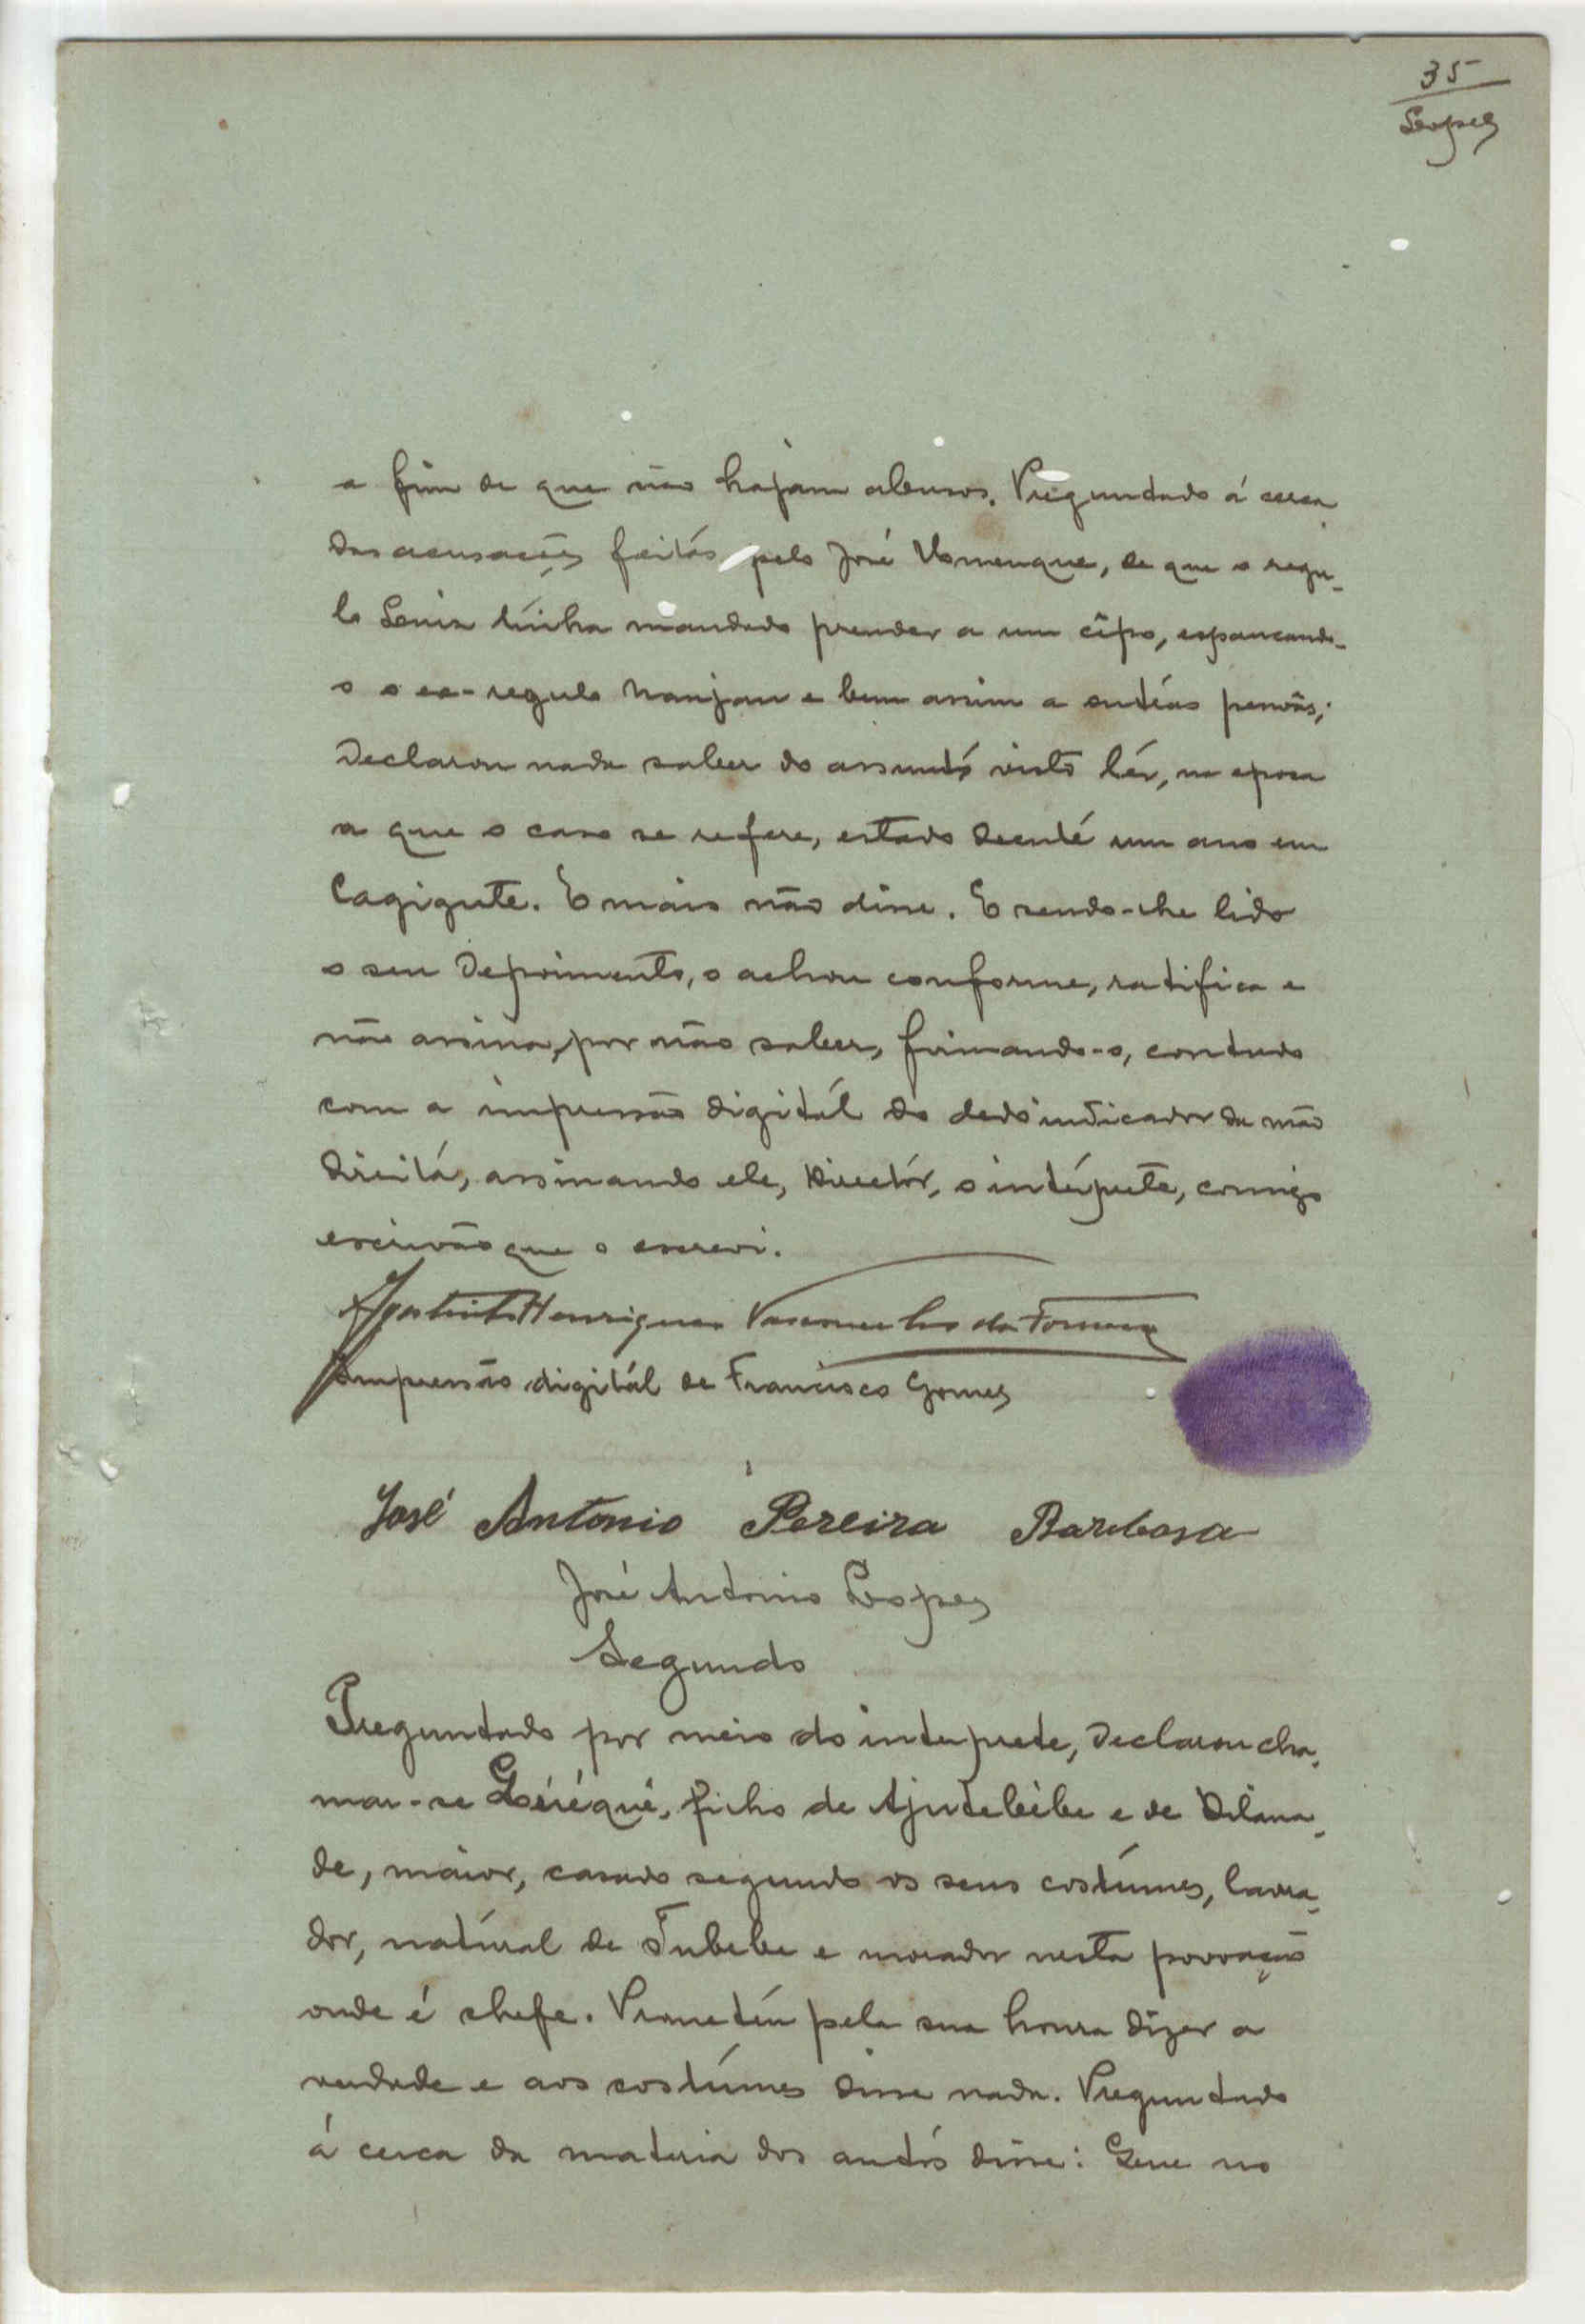 35
Lopes
a fim de que não hajam abusos. Preguntado á cerca
das acusações feitas pelo José Vomenque, de que o regu-
lo Luiz tinha mandado prender a um cipo, espancando-
o o ex-regulo Nanjau e bem assim a outras pessoas;
Declarou nada saber do assunto visto têr, na epoca
a que o caso se refere, estado durante um ano em
Cagigute. E mais não disse. E sendo-lhe lido
o seu Depoimento, o achou conforme, ratifica e
não assina, por não saber, firmando-o, contudo
com a impressão digitál do dedo indicador da mão
direita, assinando ele, Directôr, o intérprete, comigo
escrivão que o escrevi.
Agostinho Henriques Vasconcelos da Fonseca
Impressão digitál de Francisco Gomes
José Antonio Pereira Barbosa
José Antonio Lopes
Segundo
Preguntado por meio do interprete, Declarou cha-
mar-se filho de e de
de, maior, casado segundo os seus costúmes, lavra-
dor, natural de Tubebe e morador nesta povoação
onde é chefe. Prometeu pela sua honra dizer a
verdade e aos costúmes disse nada. Preguntado
á cerca da materia dos autos disse: Que no